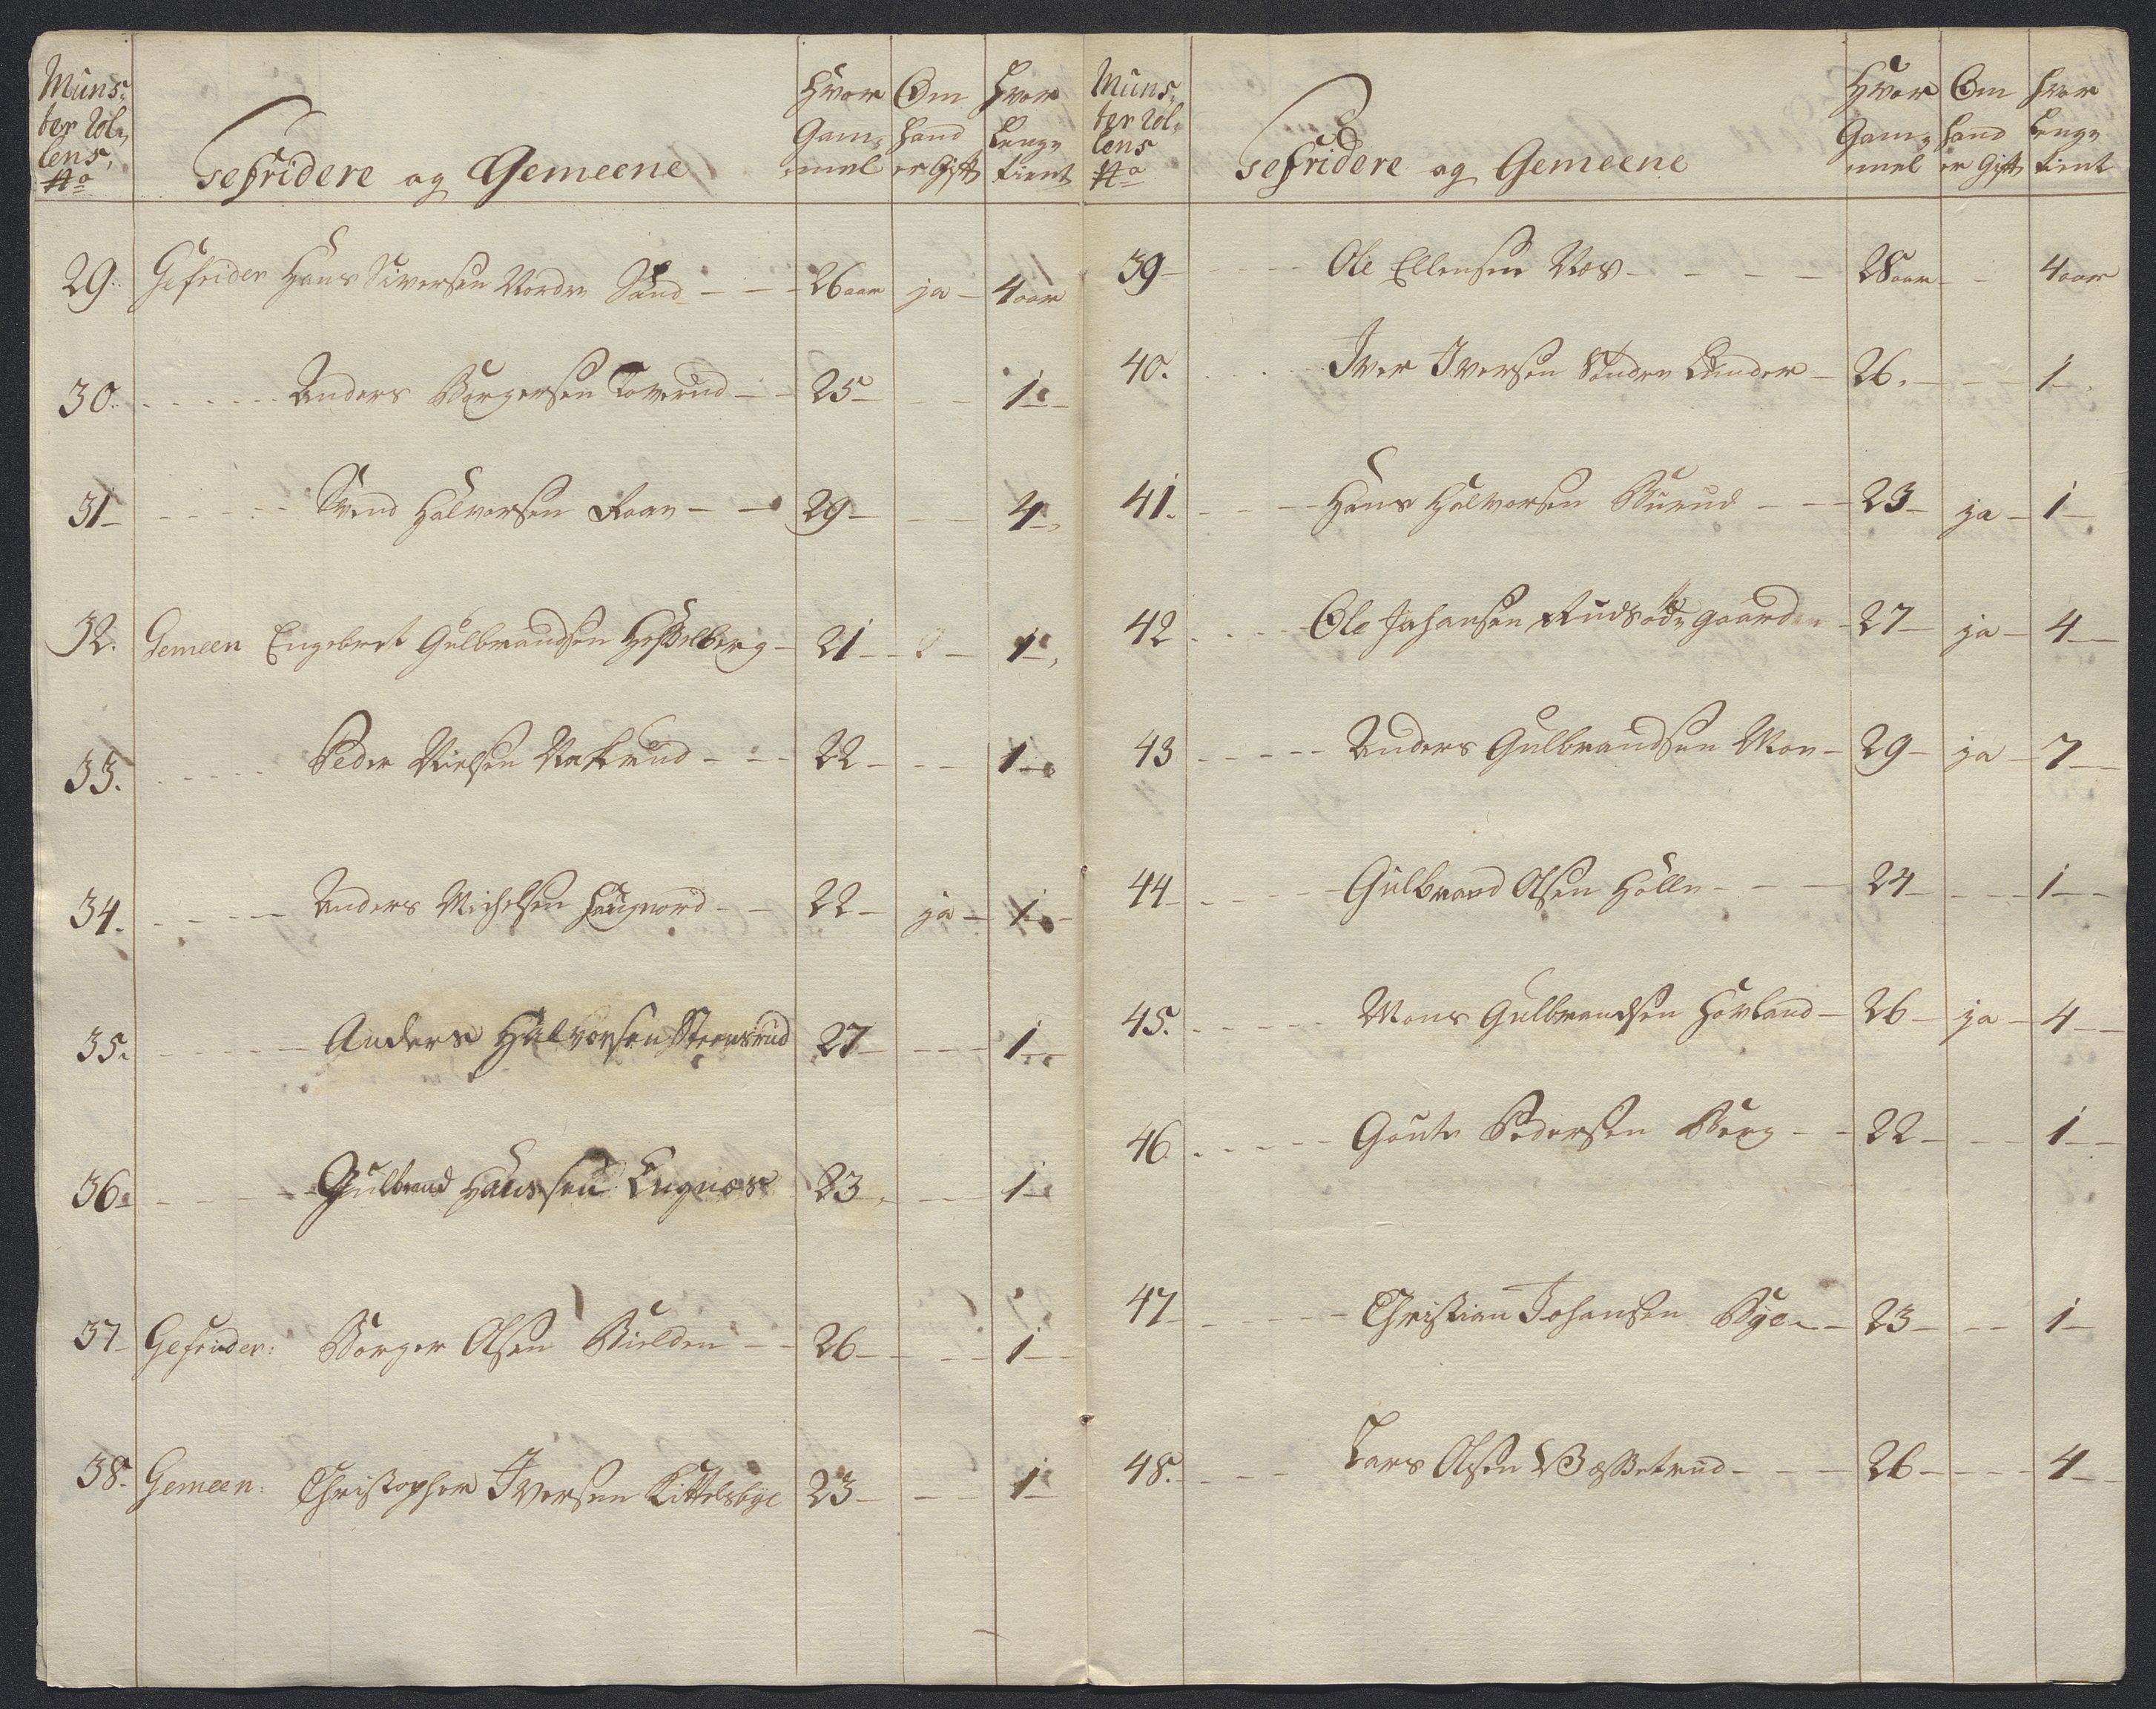 Müns-
ter Rol-
lens
No
Gefridere og Gemeene
Hvor Gam-mel
Om hand er Gift
Hvor Lenge tient
29. Gefrider Hans Siversen Nordre Sand - 26 aar ja - 4 aar
30. Anders Borgersen - 25 - 1 -
31 - Svend Halvorsen Roen - 29 - 4 -
32. Gemeen Engebret Gulbrandsen Hesselberg - 21 - 1 -
33. Peder Nielsen - 22 - 1 -
34. Anders Michelsen - 22 - ja - 1 -
35. Anders Halvorsen Steensrud 27 - 1 -
36. Gulbrand Hanssen Engnæs 23 - 1 -
37 - Gefrider: Borger Olsen Bielden - 26 - 1 -
38. Gemeen: Christopher Iversen Kittelsbye 23 - 1 -
Müns-
ter Rol-
lens
No
Gefridere og Gemeene
Hvor Gam-mel
Om hand er Gift
Hvor Lenge tient
39 - Ole Ellensen - 28 aar - 4 aar
40. Iver Iversen Söndre Lunder - 26. - 1 -
41. Hans Halvorsen Burud - 23 - ja - 1 -
42 Ole Johansen Rudsödegaard - 27 - ja - 4 -
43 Anders Gulbrandsen Moe - 29 - ja - 7 -
44 - Gulbrand Olsen Holle - 24 - 1 -
45. Mons Gulbrandsen Hovland - 26 - ja - 4 -
46. Goute Pedersen Berg - 22 - 1 -
47 - Christian Johansen Bye - 23 - 1 -
48. Lars Olsen - 26 - 4 -